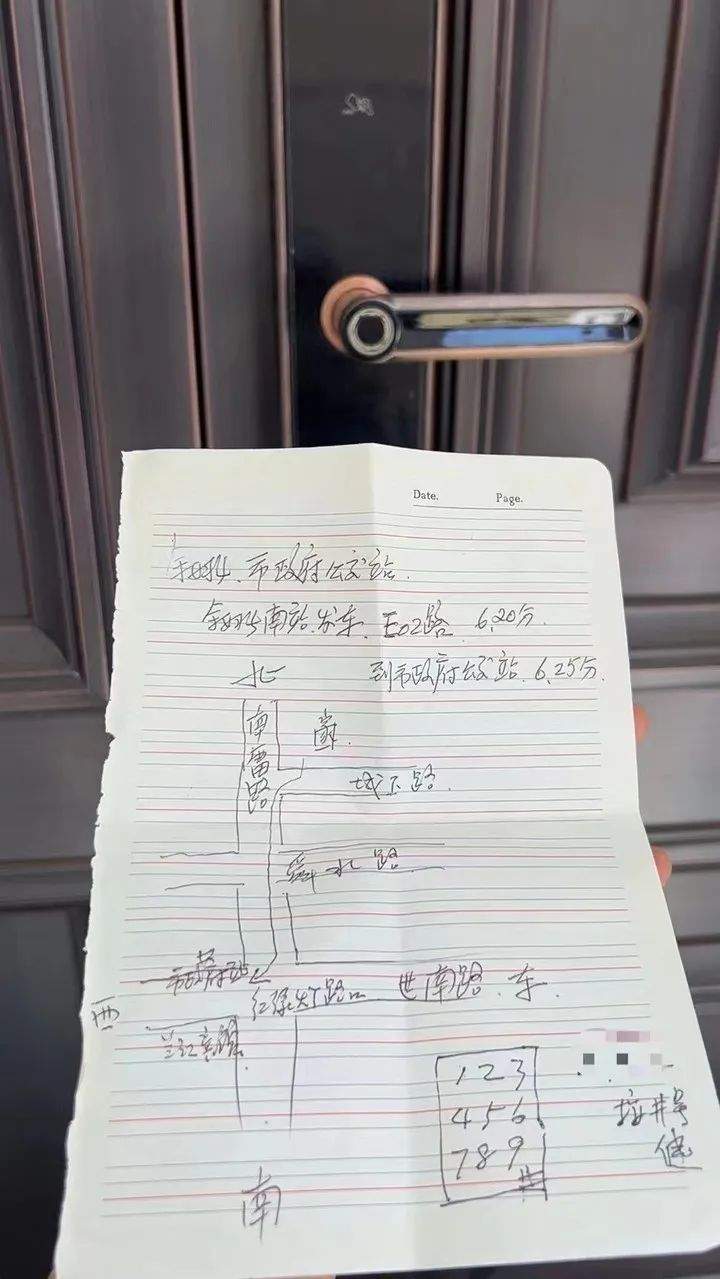 市政府公交站.
南站.发车. E02路. 6,20分.
北
到市政府公交站. 6,25分.
南雷路
城下路.
舜水路
市政府站
红绿灯路口
世南路.
西
兰江宾馆
1 2 3
4 5 6
7 8 9
#
按井号
健
南
Date.
Page.